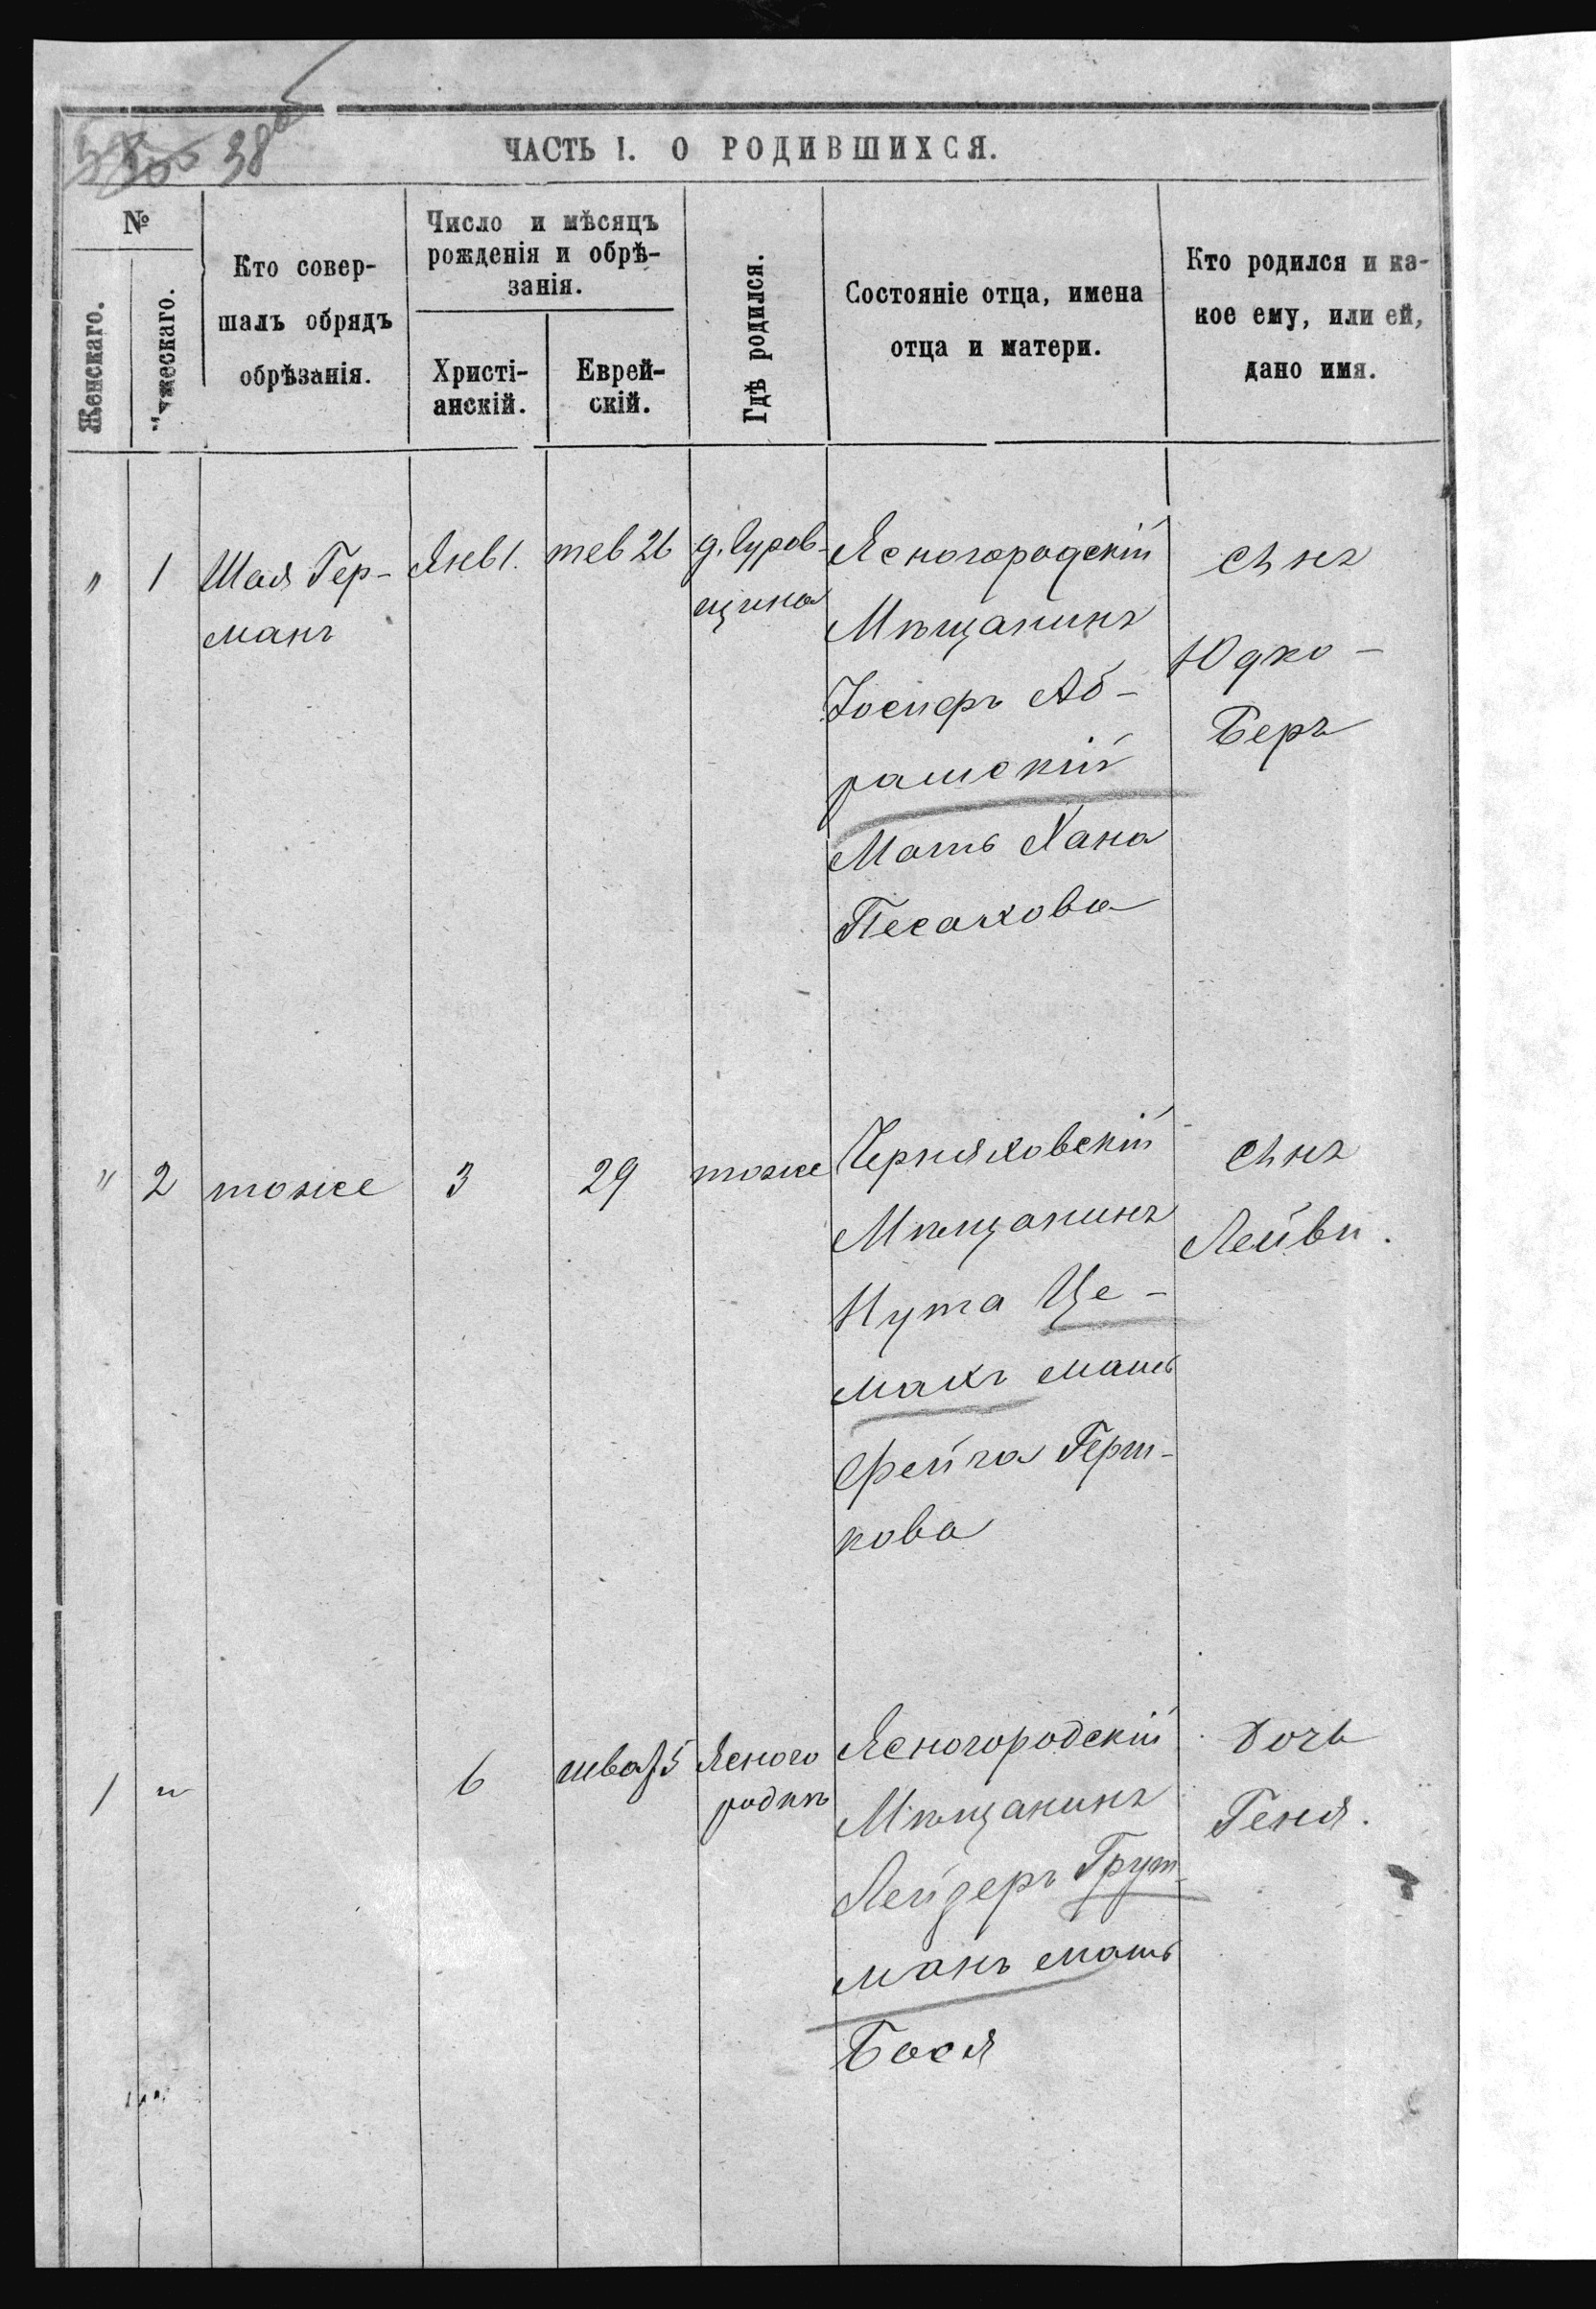 38об
ЧАСТЬ I. О РОДИВШИХСЯ.
№
Женскаго.
Мужескаго.
Кто совер-
шалъ обрядъ
обрѣзанія.
Число и мѣсяцъ
рожденія и обрѣ-
занія.
Христі-
анскій.
Еврей-
скій.
Гдѣ родился.
Состояніе отца, имена
отца и матери.
Кто родился и ка-
кое ему, или ей,
дано имя.
" 1
Шая Гер-
манъ
Янв 1.
тев 26
д. Гуров-
щина
Ясногородскій
Мѣщанинъ
Іосиеръ Аб-
рамскій
Мать Хана
Песахова
сынъ
Юдко-
Беръ
" 2
тоже
3
29
тоже
Черняховскій
Мѣщанинъ
Нута Це-
махъ мать
Фейга Герш-
кова
сынъ
Лейви.
1 "
6
шват 5
Ясного
родкѣ
Ясногородскій
Мѣщанинъ
Лейзеръ Грут-
манъ мать
Бася
дочь
Геня.